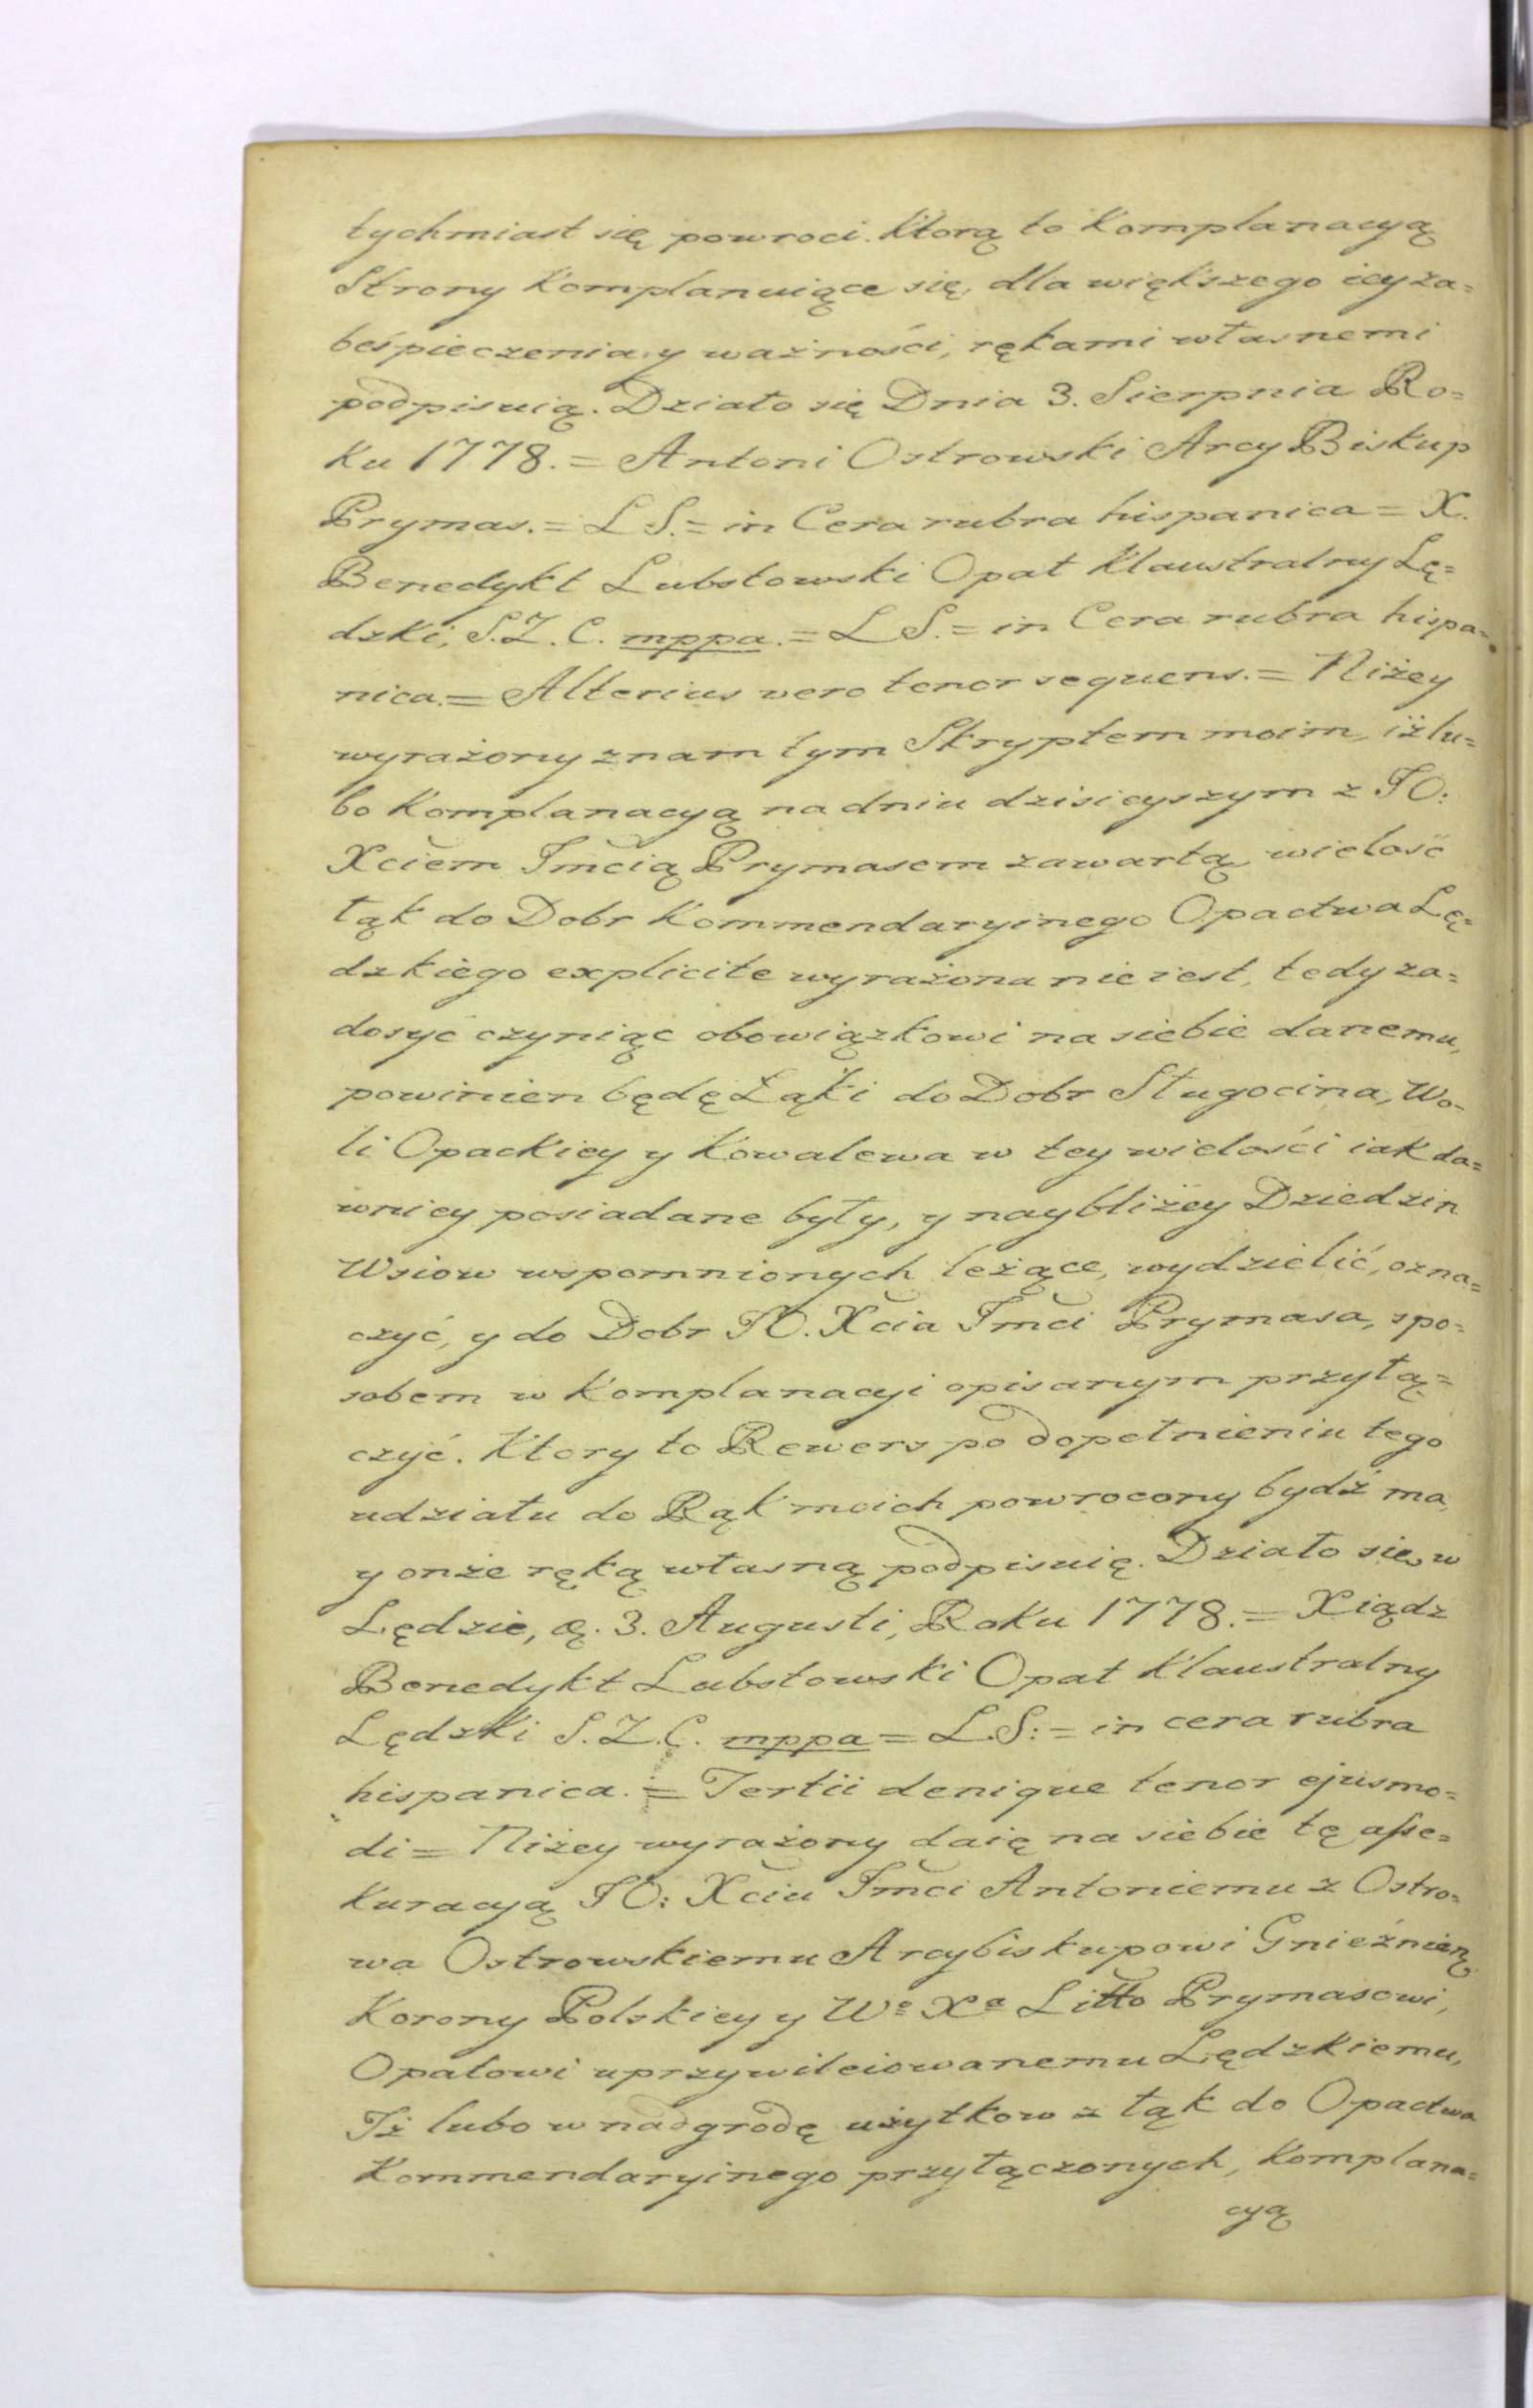 tychmiast się powroci. Ktorą to Komplanacyą
Strony Komplanuiące się, dla większego iey za=
beśpieczenia y ważności, rękami własnemi
podpisuią. Działo się Dnia 3. Sierpnia Ro=
ku 1778. = Antoni Ostrowski Arcy Biskup
Prymas. = L S. = in Cera rubra hispanica = X.
Benedykt Lubstowski Opat Klaustralny Lę=
dzki, S. Z. C. mppa. = L S. = in Cera rubra hispa=
nica. = Alterius vero tenor sequens. = Niżey
wyrażony znam tym Skryptem moim, iż lu=
bo Komplanacyą na dniu dzisieyszym z JO:
Xciem Jmcią Prymasem zawartą wielość
łąk do Dobr Kommendaryinego Opactwa Lę=
dzkiego explicite wyrażona nie iest, tedy za=
dosyć czyniąc obowiązkowi na siebie danemu,
powinien będę Łąki do Dobr Sługocina, Wo=
li Opackiey y Kowalewa w tey wielości iak da=
wniey posiadane były, y naybliżey Dziedzin
Wsiow wspomnionych leżące, wydzielić, ozna=
czyć, y do Dobr JO. Xcia Jmci Prymasa, spo=
sobem w Komplanacyi opisanym przyłą=
czyć. Ktory to Rewers po dopełnieniu tego
udziału do Rąk moich powrocony bydź ma,
y onże ręką własną podpisuię. Działo się w
Lędzie, d. 3. Augusti, Roku 1778. = Xiądz
Benedykt Lubstowski Opat Klaustralny
Lędzki S. Z. C. mppa = L.S: = in cera rubra
hispanica. = Tertii denique tenor ejusmo=
di = Niżey wyrażony daię na siebie tę asse=
kuracyą JO: Xciu Jmci Antoniemu z Ostro=
wa Ostrowskiemu Arcybiskupowi Gnieźnień
Korony Polskiey y Wo Xa Litto Prymasowi,
Opatowi uprzywileiowanemu Lędzkiemu,
Iż lubo w nadgrodę użytkow z łąk do Opactwa
Kommendaryinego przyłączonych, Komplana=
cyą